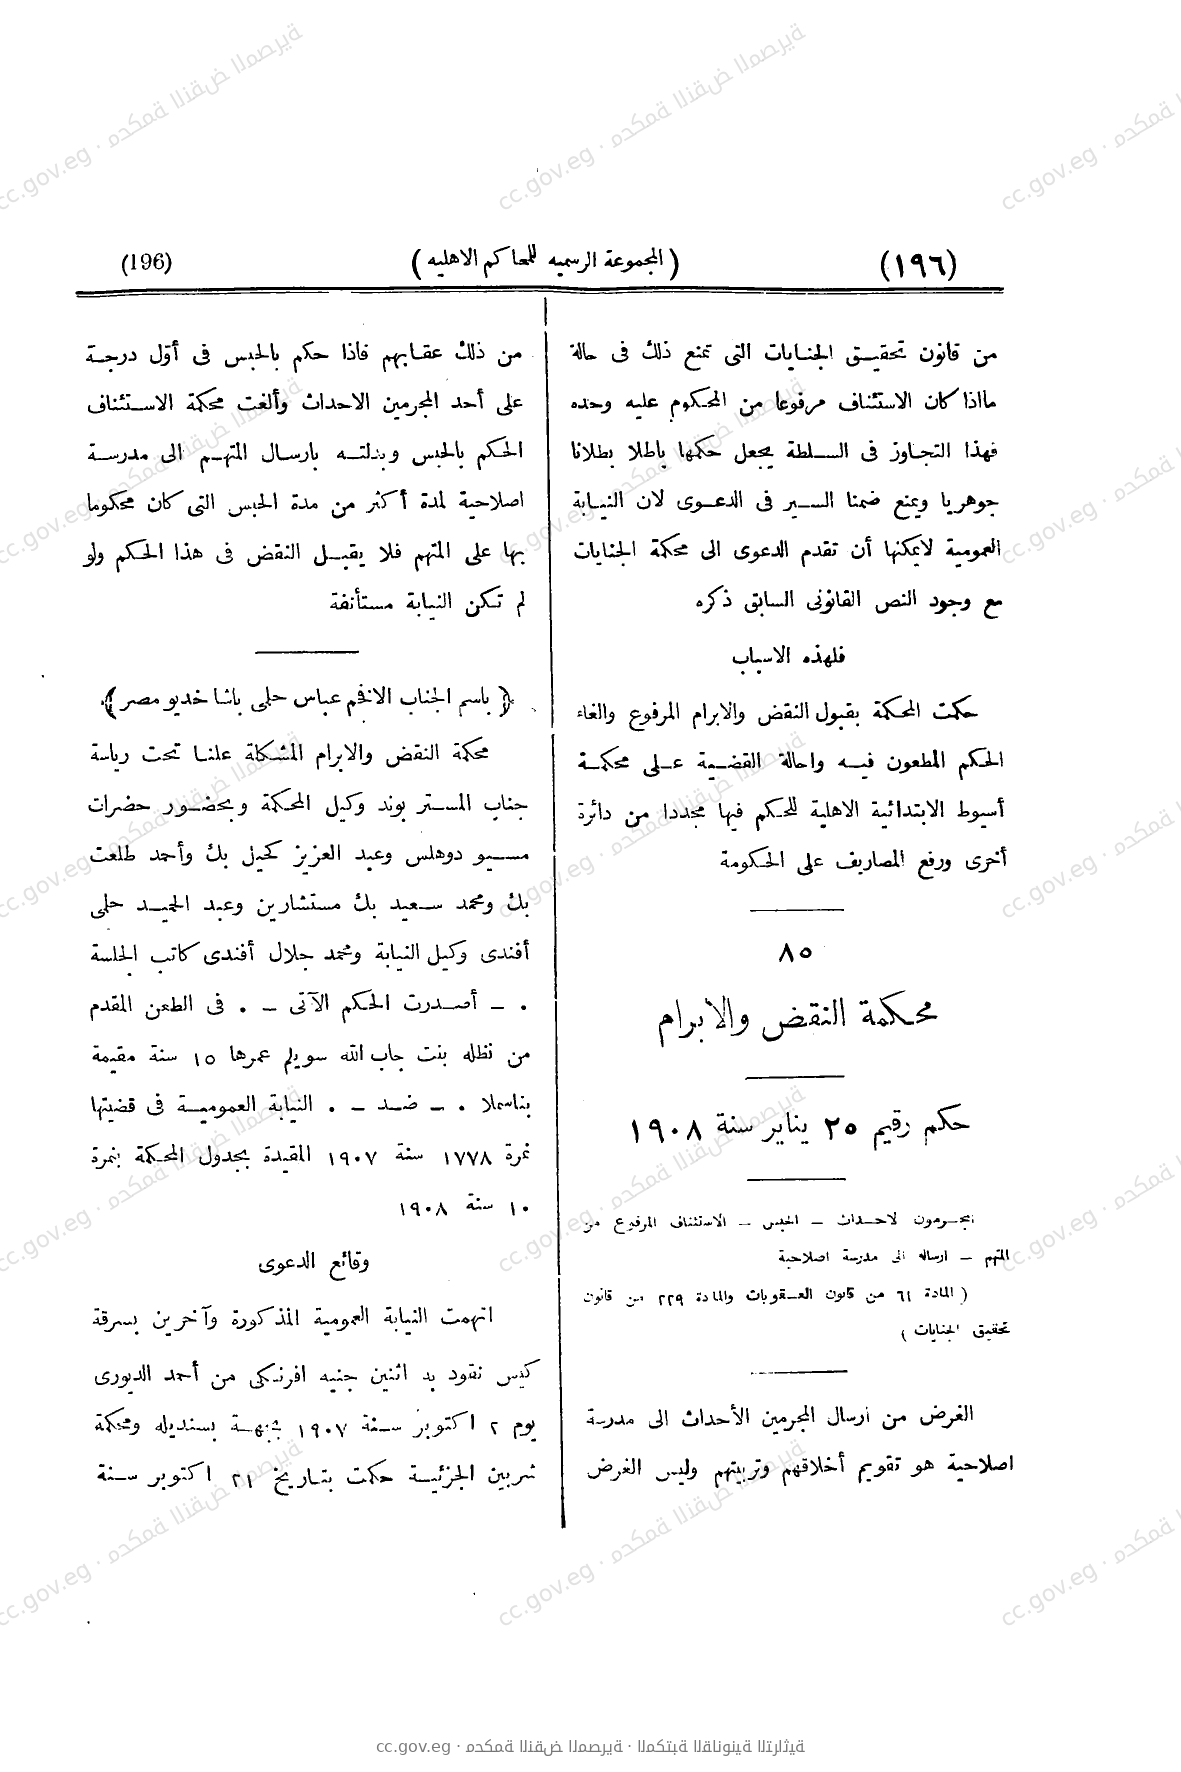 (١٩٦) (المجموعة الرسميه للمحاكم الاهليه) (196)
من قانون تحقيق الجنايات التى تمنع ذلك فى حالة
مااذا كان الاستئناف مرفوعا من المحكوم عليه وحده
فهذا التجاوز فى السلطة يجعل حكمها باطلا بطلانا
جوهريا ويمنع ضمنا السير فى الدعوى لان النيابة
العمومية لايمكنها أن تقدم الدعوى الى محكمة الجنايات
مع وجود النص القانونى السابق ذكره
فلهذه الاسباب
حكمت المحكمة بقبول النقض والابرام المرفوع والغاء
الحكم المطعون فيه واحالة القضية على محكمة
أسيوط الابتدائية الاهلية للحكم فيها مجددا من دائرة
أخرى ورفع المصاريف على الحكومة
٨٥
محكمة النقض والابرام
حكم رقيم ٢٥ يناير سنة ١٩٠٨
المجرمون لاحداث – الحبس – الاستئناف المرفوع من
المتهم – ارساله الى مدرسة اصلاحية
(المادة ٦١ من قانون العقوبات والمادة ٢٢٩ من قانون
تحقيق الجنايات)
الغرض من ارسال المجرمين الأحداث الى مدرسة
اصلاحية هو تقويم أخلاقهم وتربيتهم وليس الغرض
من ذلك عقابهم فاذا حكم بالحبس فى أوّل درجة
على أحد المجرمين الاحداث وألغت محكمة الاستئناف
الحكم بالحبس وبدلته بارسال المتهم الى مدرسة
اصلاحية لمدة أكثر من مدة الحبس التى كان محكوما
بها على المتهم فلا يقبل النقض فى هذا الحكم ولو
لم تكن النيابة مستأنفة
﴿باسم الجناب الافخم عباس حلمى باشا خديو مصر﴾
محكمة النقض والابرام المشكلة علنا تحت رياسة
جناب المستر بوند وكيل المحكمة وبحضور حضرات
مسيو دوهلس وعبد العزيز كحيل بك وأحمد طلعت
بك ومحمد سعيد بك مستشارين وعبد الحميد حلمى
أفندى وكيل النيابة ومحمد جلال أفندى كاتب الجلسة
. – أصدرت الحكم الآتى – . فى الطعن المقدم
من نظله بنت جاب الله سويلم عمرها ١٥ سنة مقيمة
بناسملا . – ضد – . النيابة العمومية فى قضيتها
نمرة ١٧٧٨ سنة ١٩٠٧ المقيدة بجدول المحكمة بنمرة
١٠ سنة ١٩٠٨
وقائع الدعوى
اتهمت النيابة العمومية المذكورة وآخرين بسرقة
كيس نقود به اثنين جنيه افرنكى من أحمد الديورى
يوم ٢ اكتوبر سنة ١٩٠٧ بجهة بسنديله ومحكمة
شربين الجزئية حكمت بتاريخ ٢١ اكتوبر سنة
cc.gov.eg · محكمة النقض المصرية · المكتبة القانونية التراثية